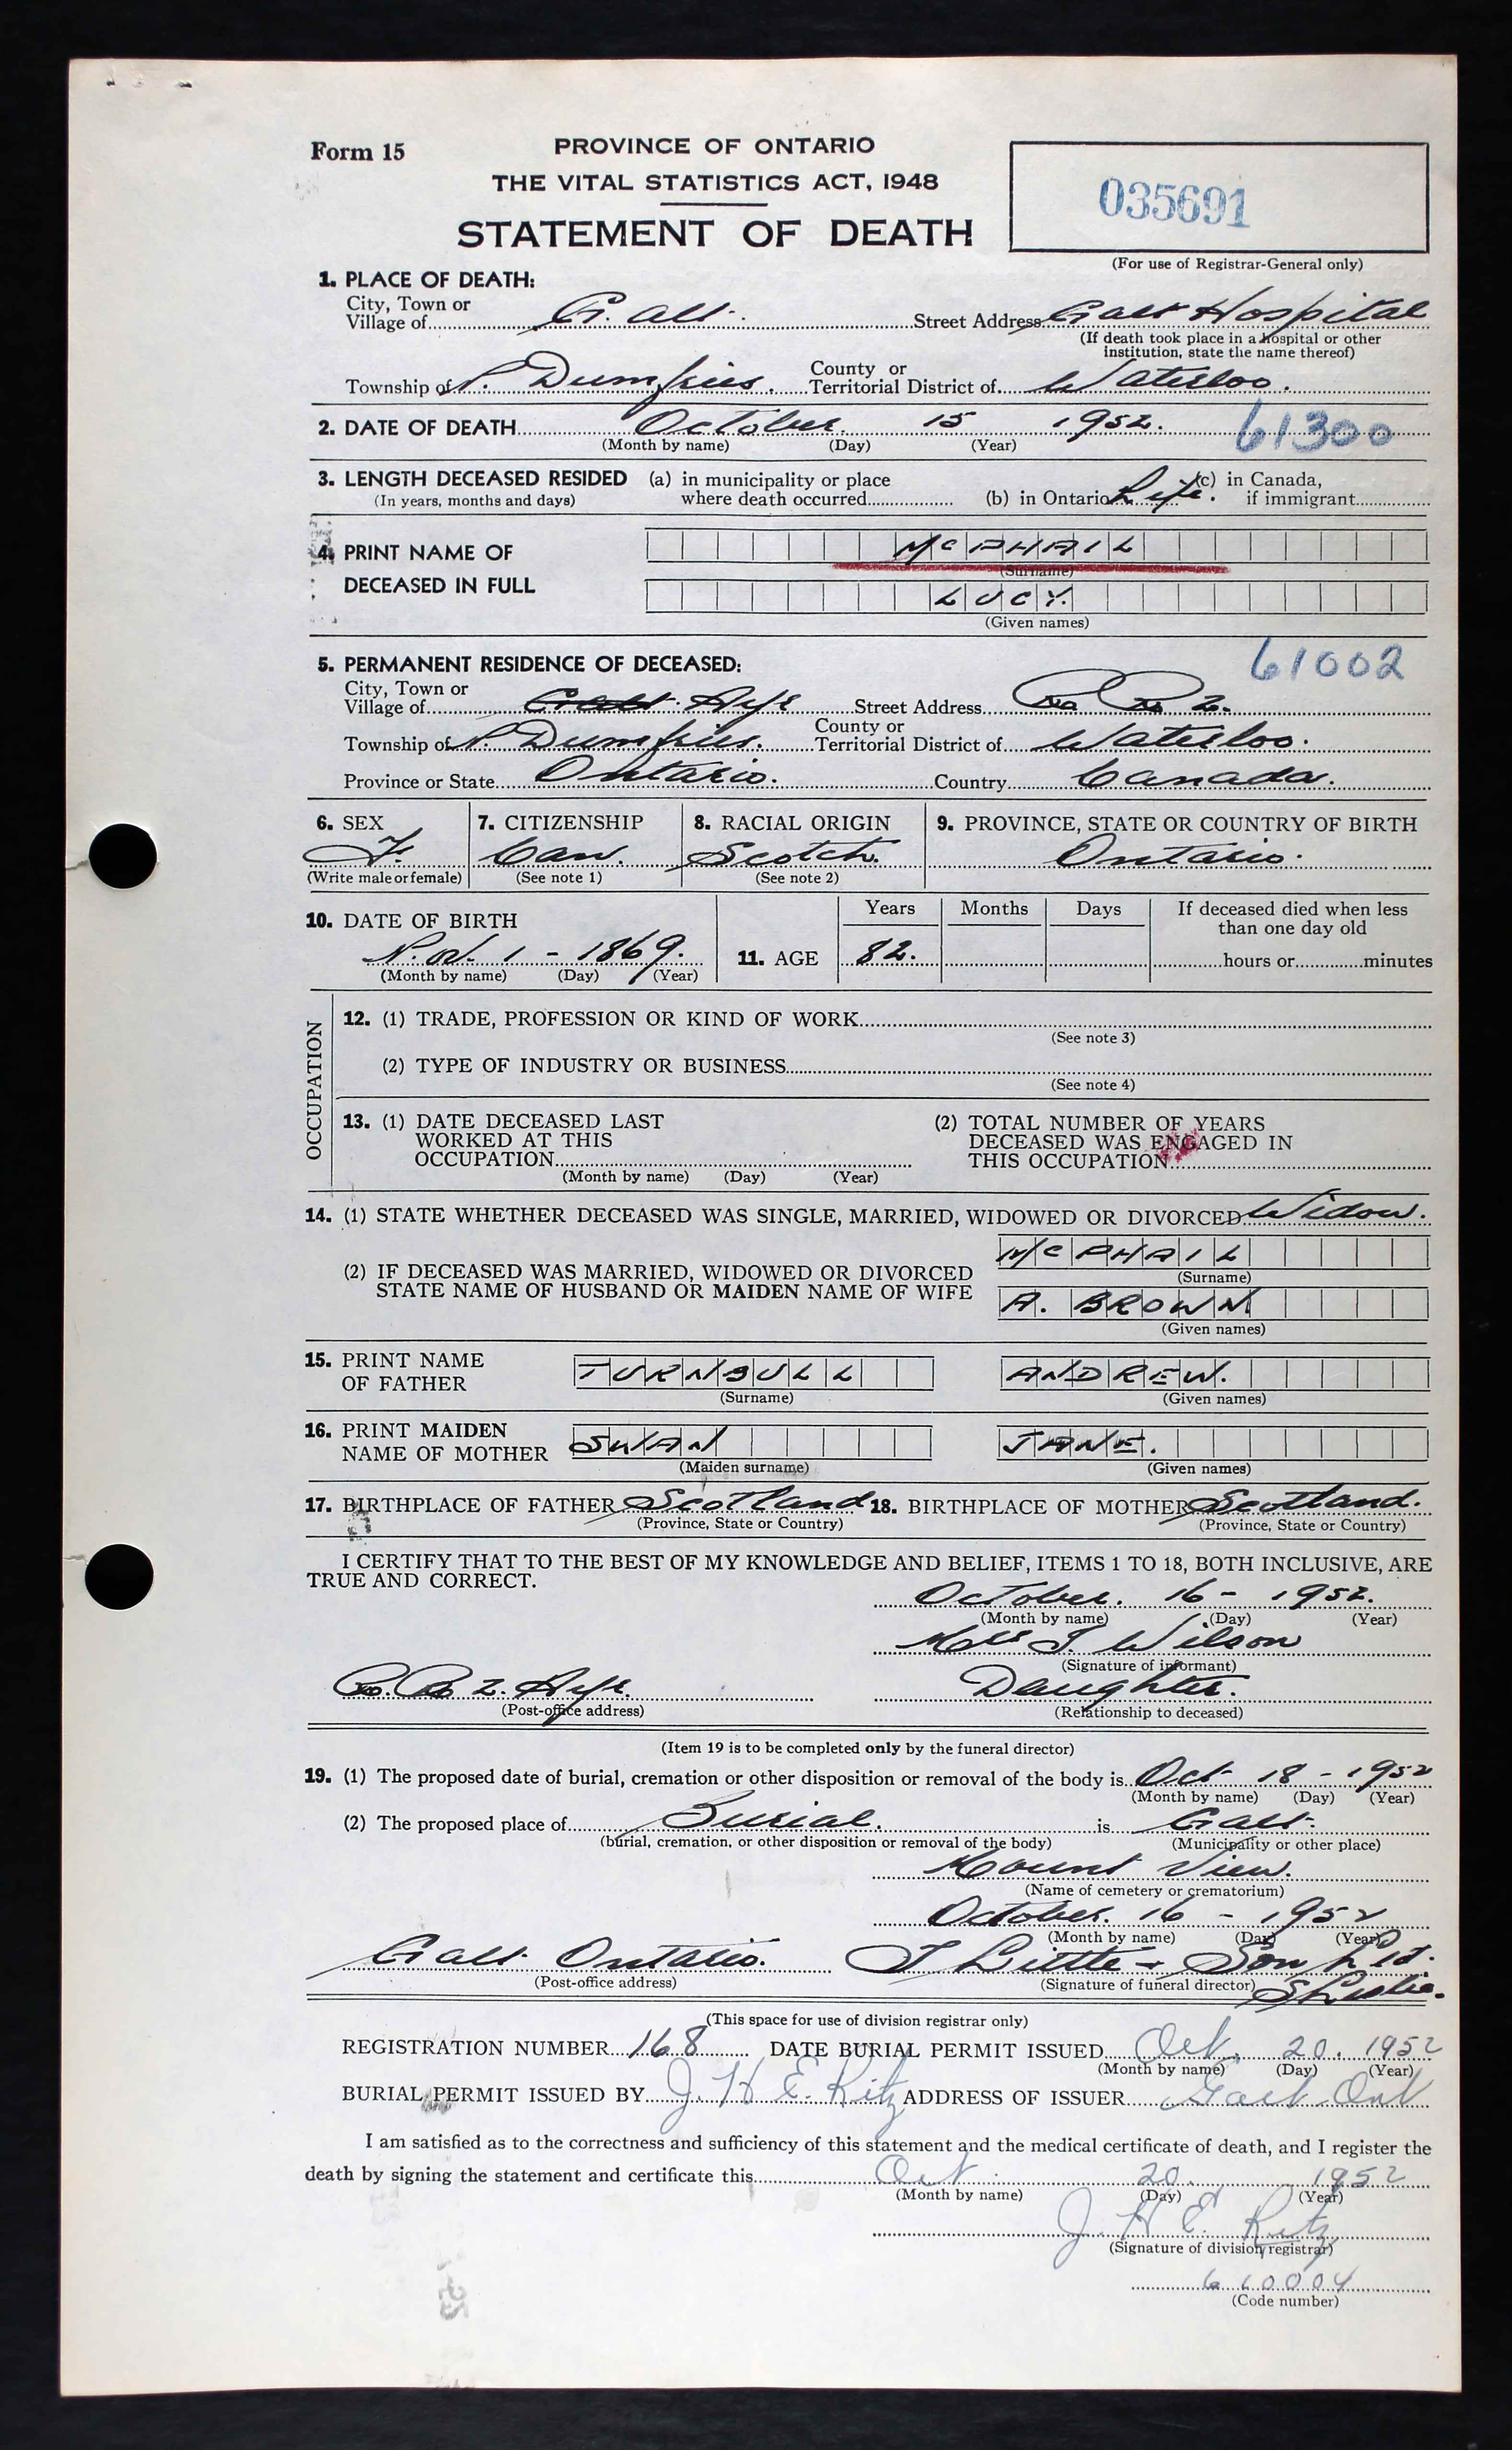 Form 15
PROVINCE OF ONTARIO
THE VITAL STATISTICS ACT, 1948
STATEMENT OF DEATH
035691
(For use of Registrar-General only)
1. PLACE OF DEATH:
City, Town or
Village of Galt. Street Address Galt Hospital
(If death took place in a hospital or other
institution, state the name thereof)
Township of N. Dumfries. County or Territorial District of Waterloo.
2. DATE OF DEATH October 15 1952. 61300
(Month by name) (Day) (Year)
3. LENGTH DECEASED RESIDED (a) in municipality or place (c) in Canada,
(In years, months and days) where death occurred (b) in Ontario Life. if immigrant
4. PRINT NAME OF McPHAIL
(Surname)
DECEASED IN FULL LUCY.
(Given names)
61002
5. PERMANENT RESIDENCE OF DECEASED:
City, Town or
Village of Galt Ayr Street Address R R 2.
Township of N. Dumfries. County or Territorial District of Waterloo.
Province or State Ontario. Country Canada.
6. SEX 7. CITIZENSHIP 8. RACIAL ORIGIN 9. PROVINCE, STATE OR COUNTRY OF BIRTH
F. Can. Scotch. Ontario.
(Write male or female) (See note 1) (See note 2)
Years Months Days If deceased died when less
than one day old
10. DATE OF BIRTH
Nov. 1 - 1869. 11. AGE 82. hours or minutes
(Month by name) (Day) (Year)
OCCUPATION
12. (1) TRADE, PROFESSION OR KIND OF WORK
(See note 3)
(2) TYPE OF INDUSTRY OR BUSINESS
(See note 4)
13. (1) DATE DECEASED LAST (2) TOTAL NUMBER OF YEARS
WORKED AT THIS DECEASED WAS ENGAGED IN
OCCUPATION THIS OCCUPATION
(Month by name) (Day) (Year)
14. (1) STATE WHETHER DECEASED WAS SINGLE, MARRIED, WIDOWED OR DIVORCED Widow.
McPHAIL
(2) IF DECEASED WAS MARRIED, WIDOWED OR DIVORCED (Surname)
STATE NAME OF HUSBAND OR MAIDEN NAME OF WIFE A. BROWN
(Given names)
15. PRINT NAME
OF FATHER TURNBULL ANDREW.
(Surname) (Given names)
16. PRINT MAIDEN
NAME OF MOTHER SWAN JANE.
(Maiden surname) (Given names)
17. BIRTHPLACE OF FATHER Scotland 18. BIRTHPLACE OF MOTHER Scotland.
(Province, State or Country) (Province, State or Country)
I CERTIFY THAT TO THE BEST OF MY KNOWLEDGE AND BELIEF, ITEMS 1 TO 18, BOTH INCLUSIVE, ARE
TRUE AND CORRECT.
October. 16 - 1952.
(Month by name) (Day) (Year)
Mrs J. Wilson
(Signature of informant)
R. R 2. Ayr. Daughter.
(Post-office address) (Relationship to deceased)
(Item 19 is to be completed only by the funeral director)
19. (1) The proposed date of burial, cremation or other disposition or removal of the body is Oct 18 - 1952
(Month by name) (Day) (Year)
(2) The proposed place of Burial. is Galt.
(burial, cremation, or other disposition or removal of the body) (Municipality or other place)
Mount View.
(Name of cemetery or crematorium)
October. 16 - 1952
(Month by name) (Day) (Year)
Galt Ontario. J Little + Son Ltd.
(Post-office address) (Signature of funeral director)
(This space for use of division registrar only)
REGISTRATION NUMBER 168 DATE BURIAL PERMIT ISSUED Oct. 20. 1952
(Month by name) (Day) (Year)
BURIAL PERMIT ISSUED BY J. H E. Ritz ADDRESS OF ISSUER Galt Ont
I am satisfied as to the correctness and sufficiency of this statement and the medical certificate of death, and I register the
death by signing the statement and certificate this Oct. 20. 1952
(Month by name) (Day) (Year)
J. H E. Ritz
(Signature of division registrar)
610004
(Code number)